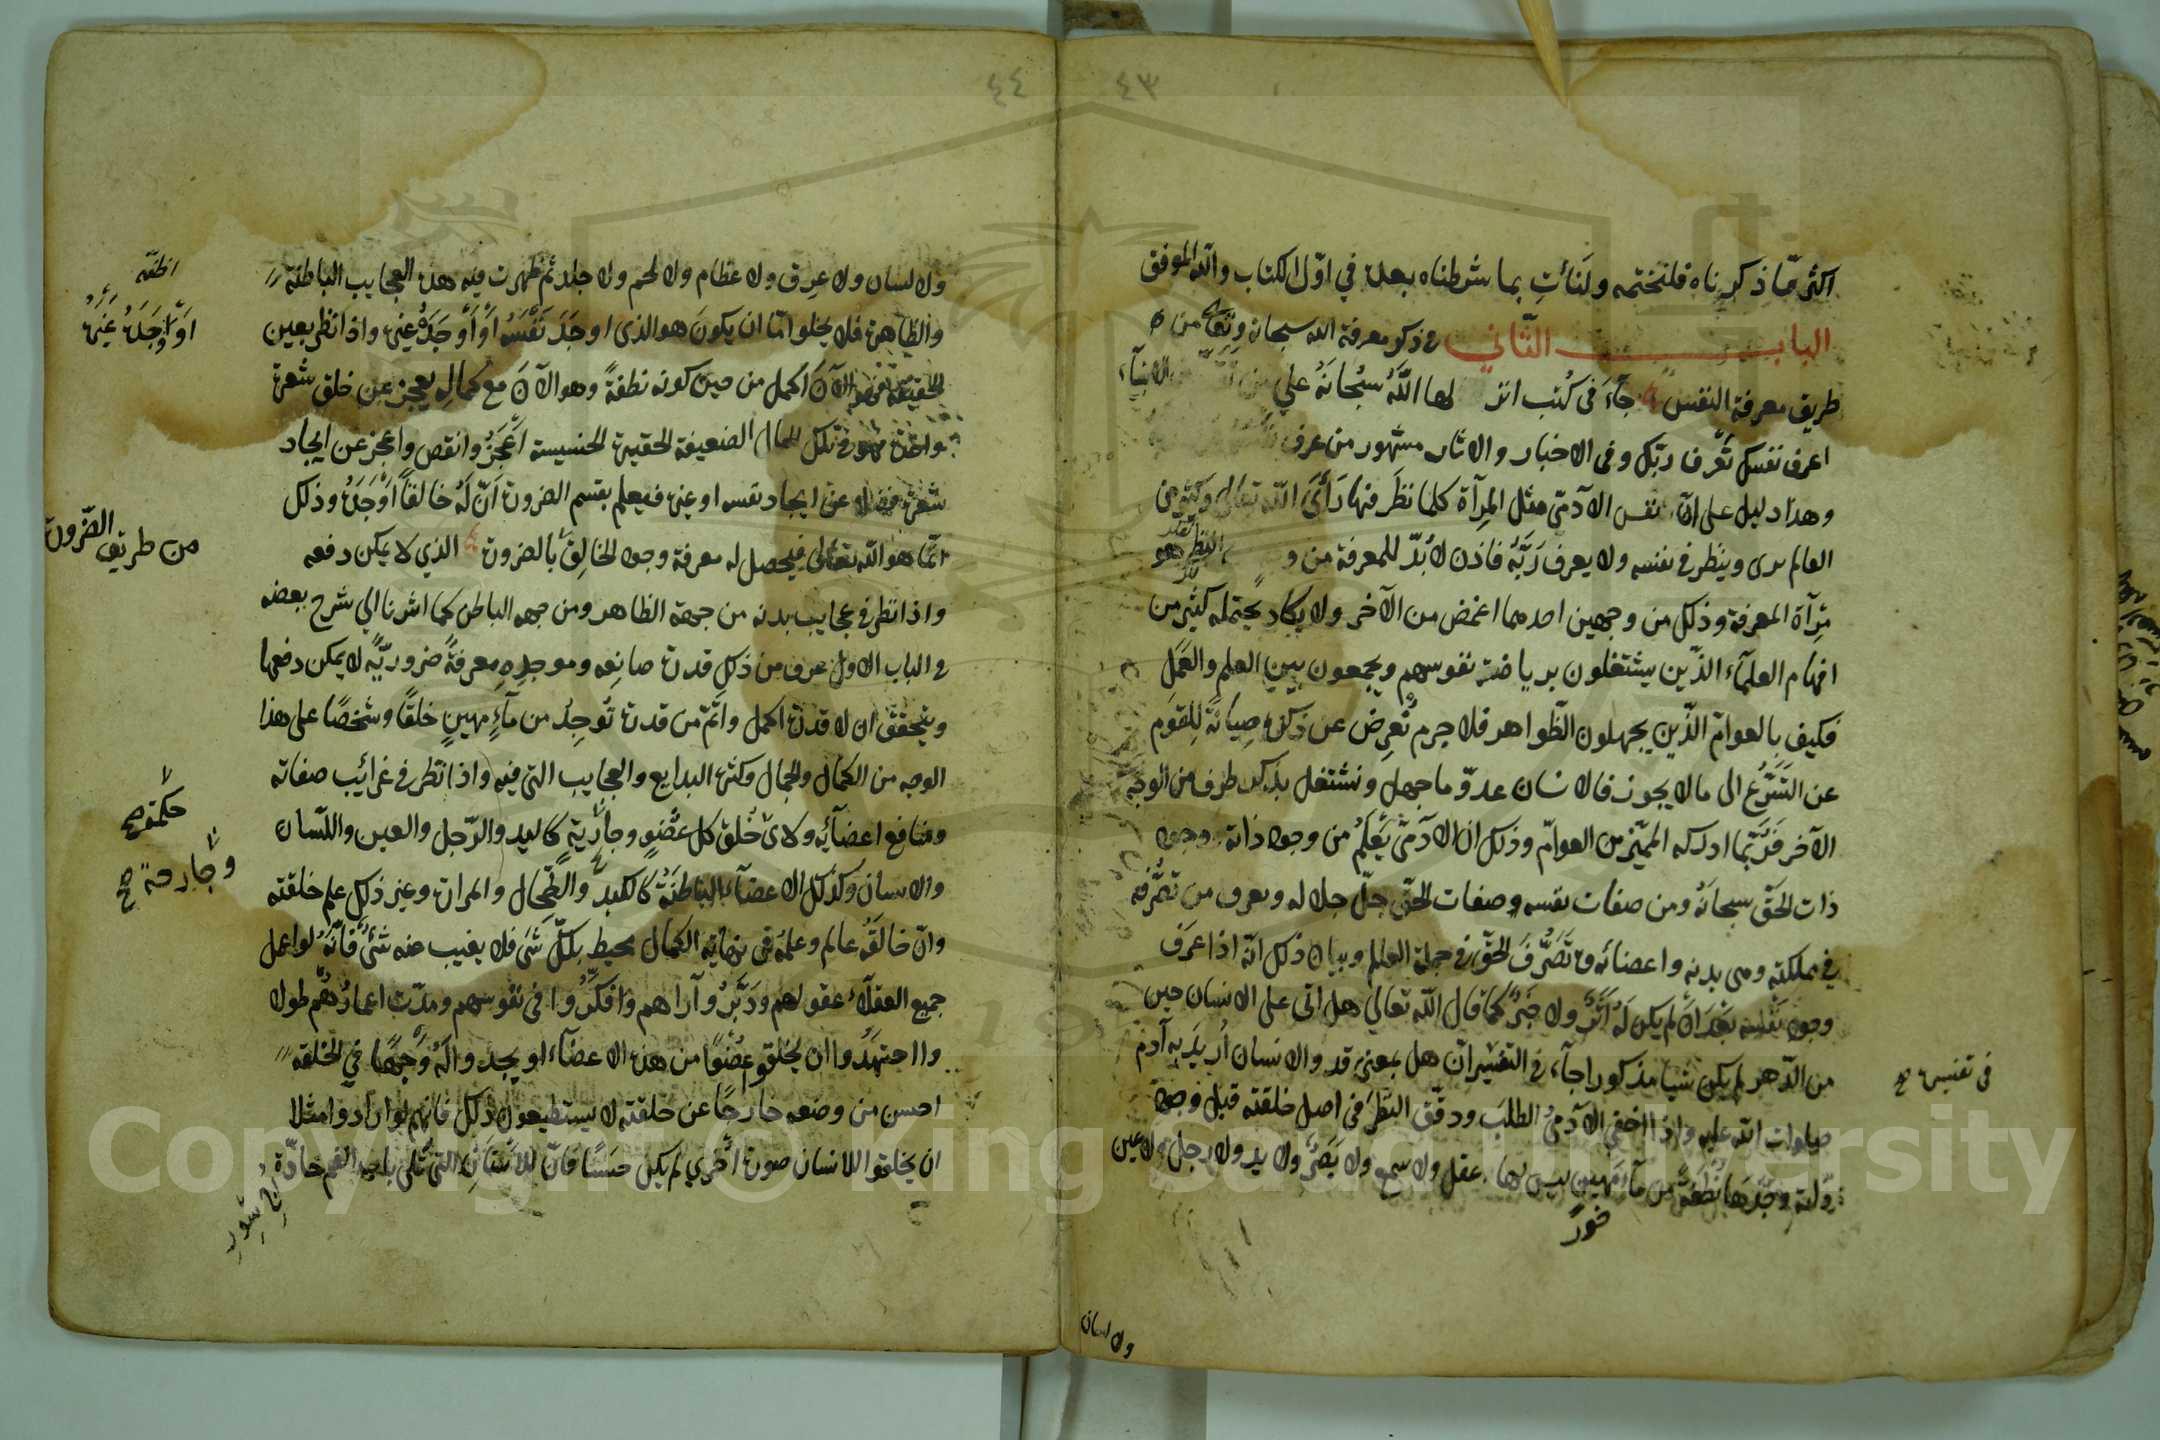 ٤٣
اكثر ممّا ذكرناه فلنختمه ولنأتِ بما شرطناه بعده في اوّل الكتاب والله الموفق
الباب الثّاني في ذكر معرفة الله سبحانه وتعالى من
طريق معرفة النفس جآءَ في كُتب انز لها اللّهُ سبْحانَهُ علي الانبيآء
اعرف نفسك تَعْرف ربّك وفى الاخبار والاثار مشهور من عرف
وهذا دليل على انّ نفس الآدمىّ مثل المِرآة كلما نظَر فيها رَأىَ اللّه تعالى وكثير من
العالم يرى وينظر في نفسه ولا يعرف رَبَّهُ فاذن لا بُدّ للمعرفة من و النظر هو
مِرآة المعرفة وذلك من وجهين احدهما اغمض من الآخر ولا يكاد يحتمله كثير من
افهام العلمآء الذّين يشتغلون برياضة نفوسهم ويجمعون بين العلم والعَمَل
فكيف بِالعوامّ الذّين يجهلون الظّواهر فلا جرم نُعرِض عن ذكره صِيانَةً لِلقوَم
عن التَسَرُّع الى ما لا يجوز فالانسان عدوّ ما جهل ونشتغل بذكر طرف من الوجه
الآخر فَرُبَّما ادركه المميّز من العوامّ وذلك ان الآدمىّ يَعْلَمُ من وجود ذاته وجود
ذات الحَقّ سبحانَهُ ومن صفات نفسه وصفات الحَقّ جلّ جلاله ويعرف من تصَرُّفه
في مملكته وهى بدنه واعضائه تَصَرُّفَ الحَقّ في جملة العالم وبيان ذلك انّه اذا عرَفَ
وجود نَفْسه بَعْدَ اَنْ لم يكن لَهُ اَثَرٌ ولا خبَرٌ كما قال اللّه تعالي هل اتى على الانسان حين
من الدّهر لم يكن شيا مذكورا جآء في التفسير انّ هل بمعنى قد والانسان اُريدَ بِهِ آدم
صلوات اللّه عليه واذا الآدمىُّ الطلبَ ودقّق النّظَر فى اصل خلقته قبل وجود
وَجَدَها نُطفةً من مآءٍ مَهين ليس لها عقل ولا سمع ولا بَصَرٌ ولا يد ولا رجل ولا عين
في تفسيره صح
ولا لسان
٤٤
ولا لسان ولا عرِق ولا عظام ولا لحم ولا جلد ثم ظهرت فيه هذه العجايب الباطنة
والظّاهرة فلا يخلوا امّا ان يكونَ هو الذى اوجَدَ نَفْسَهُ اَوْ اَوْجَدَهُ غيره واذا نظر بعين
الحقيقة الآنَ اكمل من حين كونه نطفةً وهو الآنَ مع كمالِهِ يعجز عن خلق شعرة
واحدة فهو في تلك الحال الضعيفة الحقيرة الخسيسة اَعْجَزُ وانقص واعجز عن ايجاد
شعرة فضلا عن ايجاد نفسه او غيره فيعلم بقسم الضرورة اَنّ لَهُ خالقاً اَوْجَدَهُ وذلك
انّما هو اللّه تعالى فيحصل له معرفة وجود الخالِق بالضرورة الذي لا يمكن دفعه
واذا نظر في عجايب بدنه من جهة الظاهر ومن جهه الباطن كما اشرنا الي شرح بعضه
في الباب الاول عرف من ذلك قدرة صانِعه وموجِدِه معرفةً ضروريّةً لا يمكن دفعها
ويتحقّق ان لا قدرة اكمل واَتَمّ من قدرة تُوجِدُ من مآءٍ مهينٍ خلقًا وشخصًا على هذا
الوجه من الكمال والجمال وكثرة البدايع والعجايب التى فيه واذا نظر في غرائب صفاته
ومنافع اعضآئِهِ ولاىّ خُلق كل عُضْوٍ وجارية كاليد والرّجل والعين واللّسان
والاسنان وكذلك الاعضآء الباطنَةُ كالكبد والطّحال والمرارة وغير ذلك علم خلقته
وانّ خالقَهُ عالم وعلمهُ فى نهاية الكمال محيط بكلّ شَئ فلا يغيب عنه شَئٌ فانّهُ لو اعمل
جميع العقلاء عقولهم ودَبّرُوا آراءهم وافكَرُوا فى نفوسهم ومدّت اعمارُهُم طولا
واجتهَدُوا ان يخلقوا عُضْوًا من هذه الاعضآء او يجدوا لَهُ وَجْهًا في الخلقة
احسن من وضعه خارجًا عن خلقته لا يستطيعون ذلك فانّهم لو ارادوا مثلا
ان يخلقوا للانسان صورة اُخْري لم يكن حسَنًا فانّ للاَسْنَانِ التى تَلى باب الفم حادّة
او اَوْجَدَهُ غيْرَهُ
من طريق الضّرورة
حكمة صح
وجارحة صح